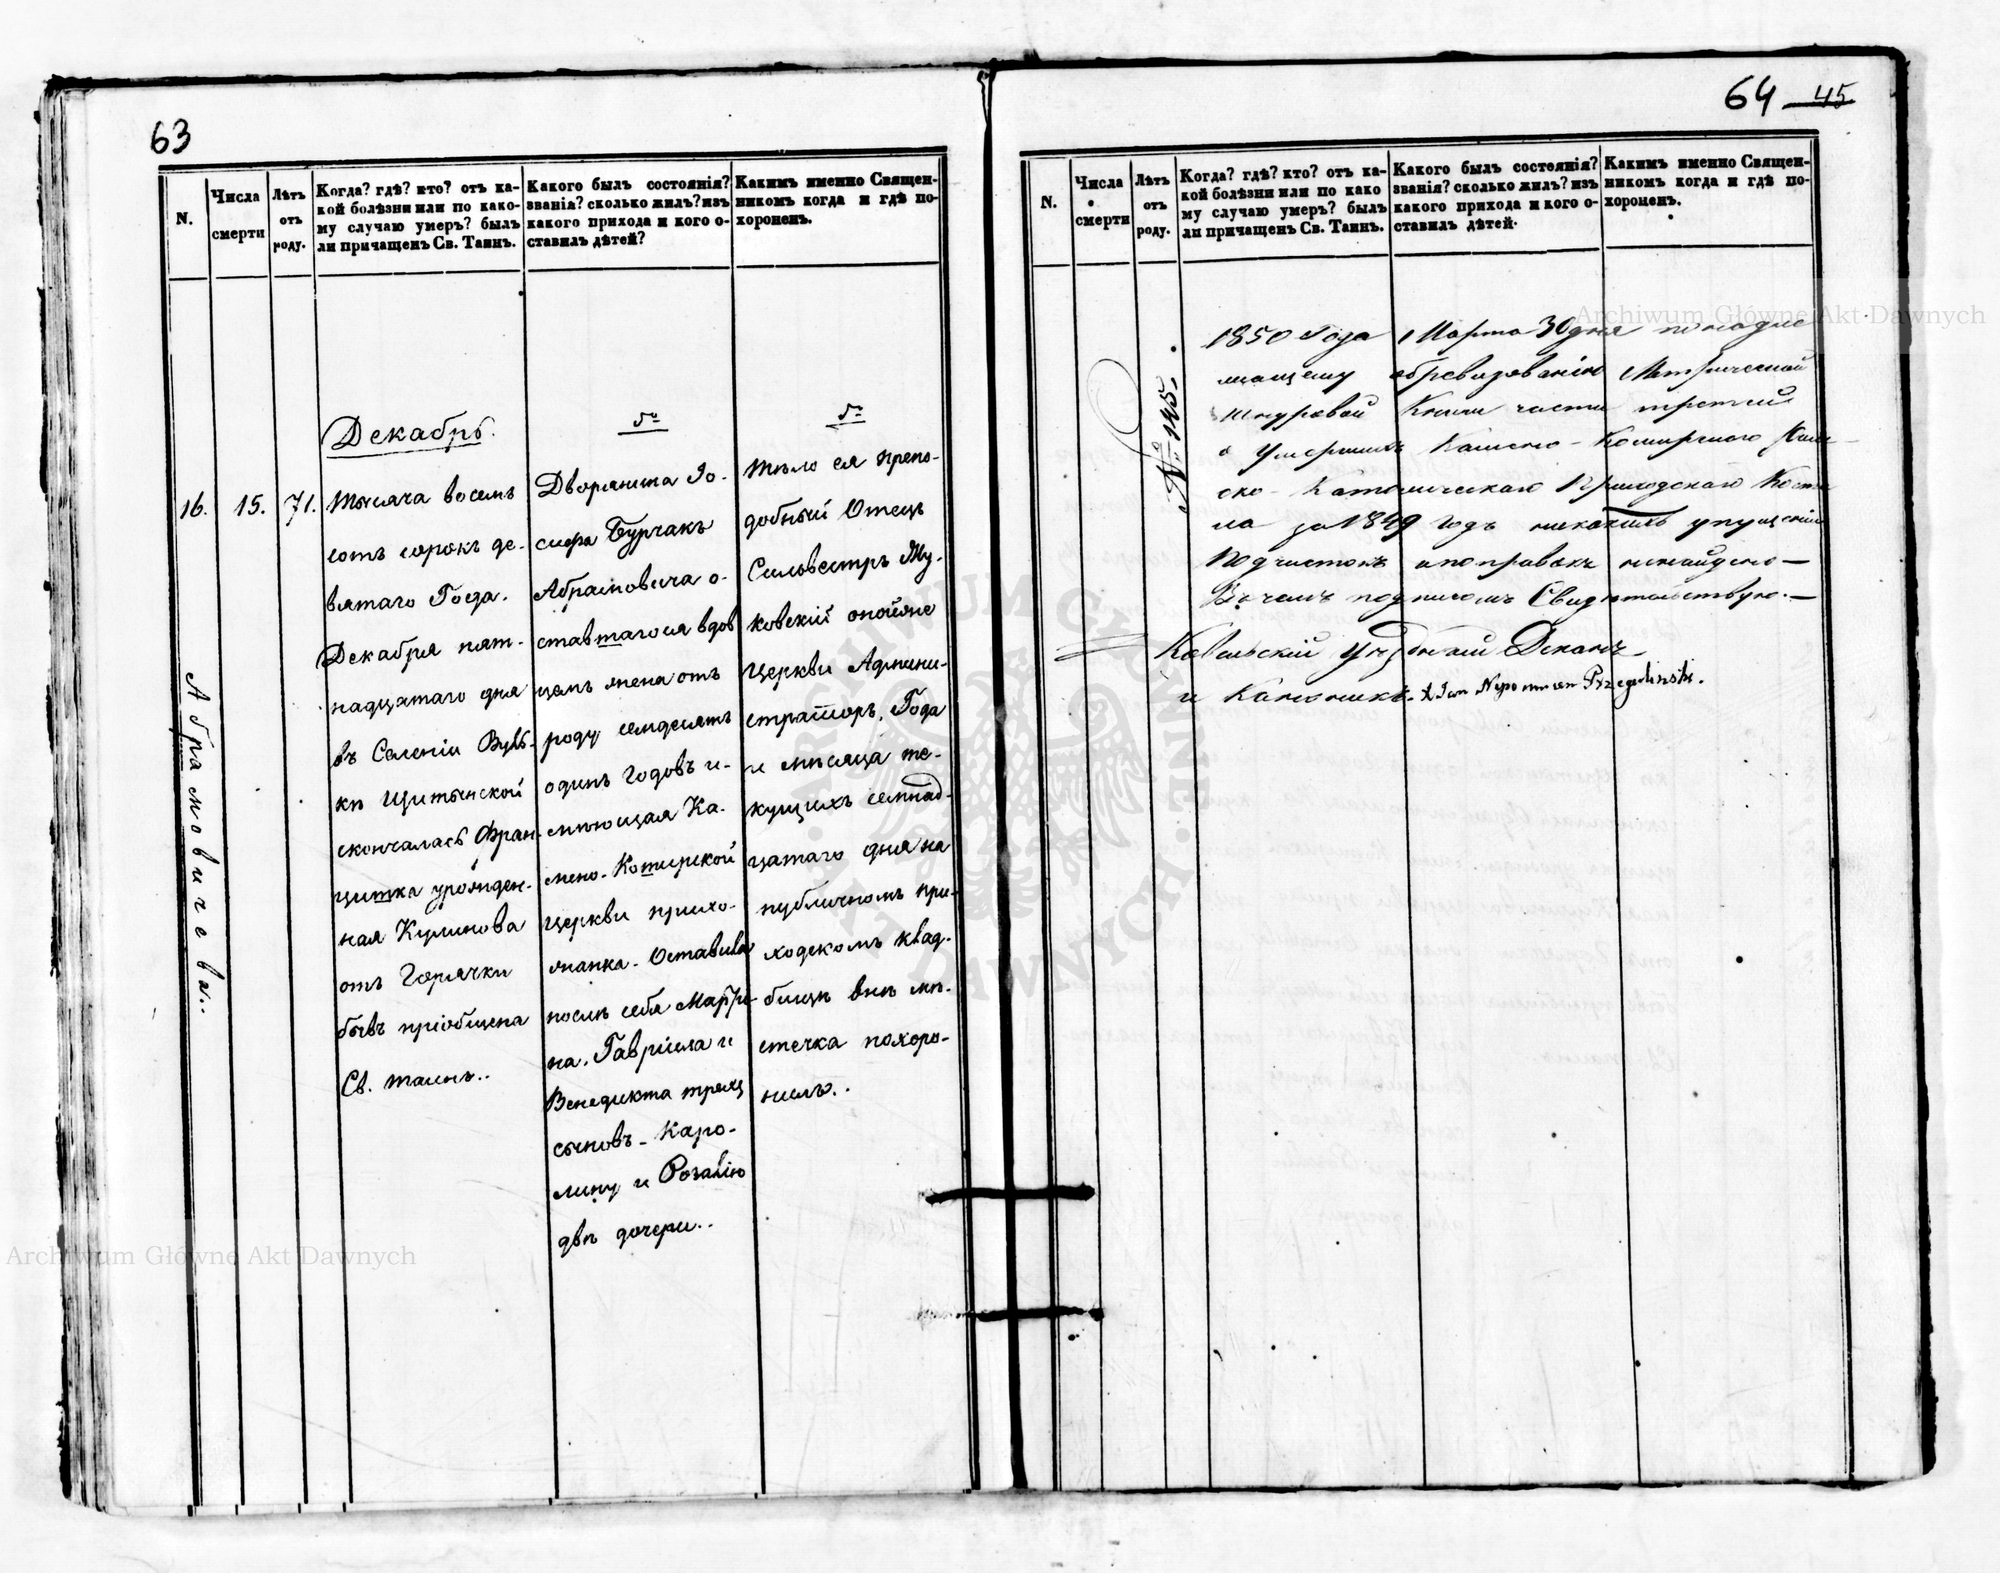 63
N.
Числа смерти
Лѣтъ отъ роду.
Когда? гдѣ? кто? отъ ка-
кой болѣзни или по како-
му случаю умеръ? былъ
ли причащенъ Св. Таинъ.
Какого былъ состоянія?
званія? сколько жилъ? изъ
какого прихода и кого о-
ставилъ дѣтей?
Какимъ именно Священ-
никомъ когда и гдѣ по-
хороненъ.
Абрамовичева..
16.
15.
71.
Декабрь.
Тысяча восемь
сотъ сорокъ де-
вятаго Года.
Декабря пят-
надцятаго дня
въ Селеніи Вуль-
кѣ Щитынской
скончалась Фран-
цишка урожден-
ная Кулинова
отъ Горячки
бывъ пріобщена
Св. таинъ..
Дворянина Іо-
сифа Бурчакъ
Абрамовича о-
ставшагося вдов
цемъ жена отъ
роду семдесятъ
одинъ годовъ и-
мѣющая Ка-
мено-Коширской
церкви прихо-
жанка. Оставила
послѣ себя Марти-
на, Гавріела и
Венедикта трехъ
сыновъ - Каро-
лину и Розалію
двѣ дочери..
Тѣло ея препо-
добный Отецъ
Сильвестръ Жу-
ковскій опойяне
церкви Админи-
страторъ. Года
и мѣсяца те-
кущихъ семнад-
цатаго дня на
публичномъ при-
ходскомъ клад-
бищѣ внѣ мѣ-
стечка похоро-
нилъ..
64 45
N.
Числа смерти
Лѣтъ отъ роду.
Когда? гдѣ? кто? отъ ка-
кой болѣзни или по како
му случаю умеръ? былъ
ли причащенъ Св. Таинъ.
Какого былъ состоянія?
званія? сколько жилъ? изъ
какого прихода и кого о-
ставилъ дѣтей.
Какимъ именно Священ-
никомъ когда и гдѣ по-
хороненъ.
№ 145.
1850 Года Марта 30 дня по надле
жащему обревизованію Метрической
шнуровой Книги части третией
о Умершихъ Камено-Коширского Рим
ско-Католическаго Приходскаго Косте
ла за 1849 годъ никакихъ упущеній
подчистокъ и поправокъ ненайдено—
Въ чемъ подписомъ Свидѣтельствую.—
Ковельскій Уѣздный Деканъ
и Каноникъ. X Jan Nepomucen Przegaliński.
Archiwum Główne Akt Dawnych
Archiwum Główne Akt Dawnych
ARCHIWUM GŁÓWNE AKT DAWNYCH